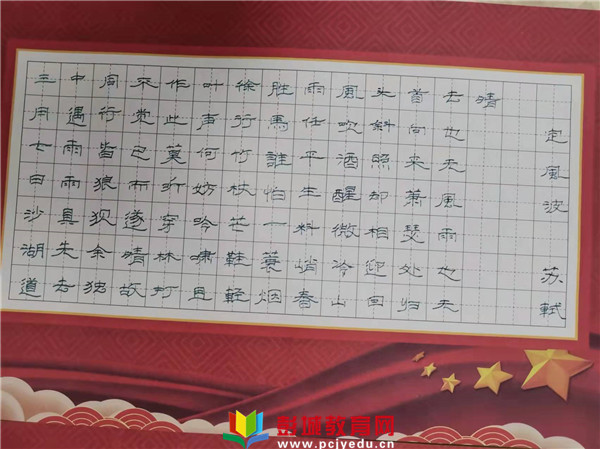 定風波 苏軾
三月七日沙湖道
中遇雨雨具先去
同行皆狼狈余独
不觉已而遂晴故
作此莫听穿林打
叶声何妨吟啸且
徐行竹杖芒鞋轻
胜馬誰怕一蓑烟
雨任平生料峭春
風吹酒醒微冷山
头斜照却相迎回
首向来萧瑟处归
去也无風雨也无
晴
彭城教育网
www.pcjyedu.cn